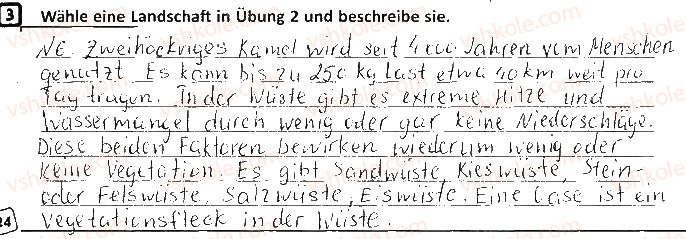 3 Wähle eine Landschaft in Übung 2 und beschreibe sie.
NE. Zweihöckriges Kamel wird seit 4000 Jahren vom Menschen
genutzt. Es kann bis zu 250 kg Last etwa 40 km weit pro
Tag tragen. In der Wüste gibt es extreme Hitze und
Wassermangel durch wenig oder gar keine Niederschläge.
Diese beiden Faktoren bewirken wiederum wenig oder
keine Vegetation. Es gibt Sandwüste, Kieswüste, Stein-
oder Felswüste, Salzwüste, Eiswüste. Eine Oase ist ein
24 Vegetationsfleck in der Wüste.